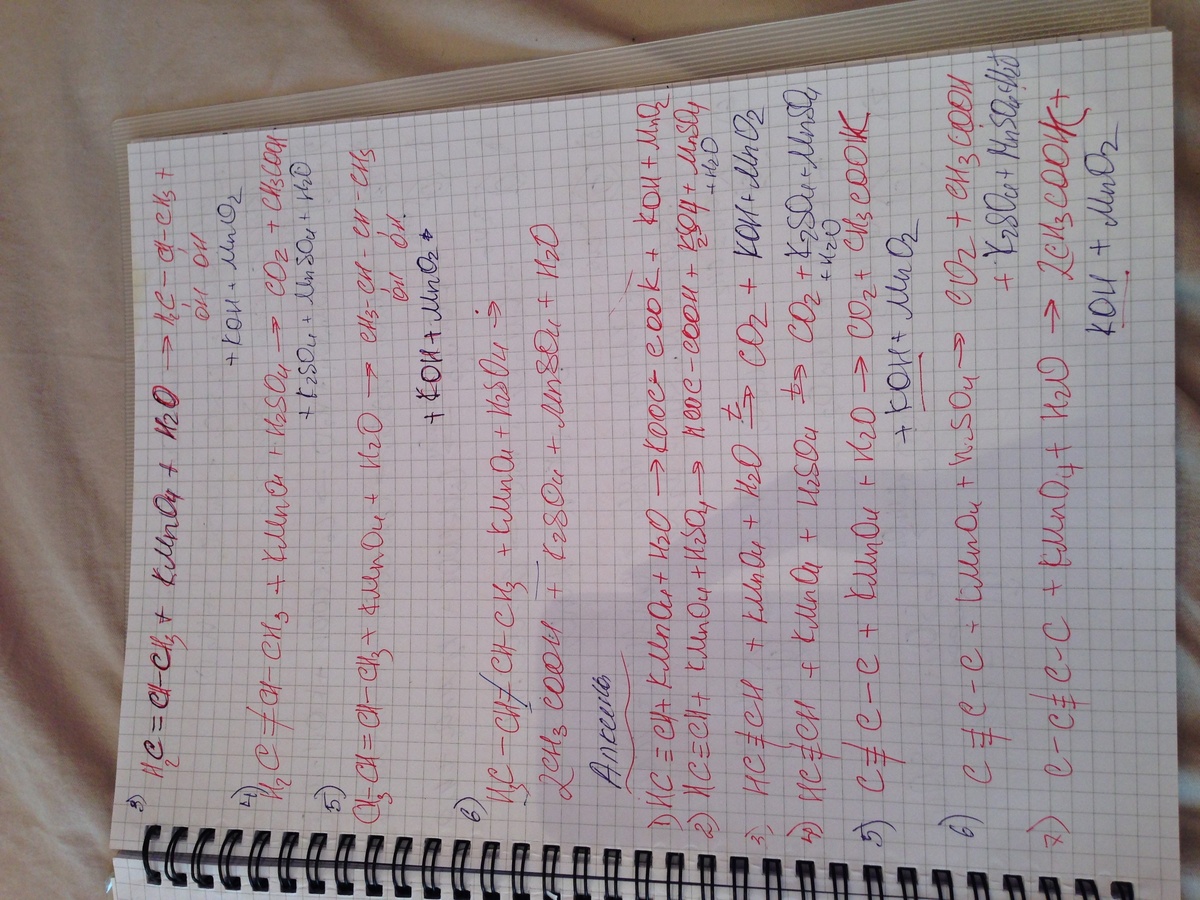 3) H2C=CH-CH3 + KMnO4 + H2O → H2C-CH-CH3 +
OH OH
+ KOH + MnO2
4) H2C≠CH-CH3 + KMnO4 + H2SO4 → CO2 + CH3COOH
+ K2SO4 + MnSO4 + H2O
5) CH3-CH=CH-CH3 + KMnO4 + H2O → CH3-CH-CH-CH3
OH OH
+ KOH + MnO2
6) H3C-CH≠CH-CH3 + KMnO4 + H2SO4 →
2CH3COOH + K2SO4 + MnSO4 + H2O
Алкены
1) HC≡CH + KMnO4 + H2O → KOOC-COOK + KOH + MnO2
2) HC≡CH + KMnO4 + H2SO4 → HOOC-COOH + K2SO4 + MnSO4
+ H2O
3) HC≡CH + KMnO4 + H2O t→ CO2 + KOH + MnO2
4) HC≡CH + KMnO4 + H2SO4 t→ CO2 + K2SO4 + MnSO4
+ H2O
5) C≡C-C + KMnO4 + H2O → CO2 + CH3COOK
+ KOH + MnO2
6) C≡C-C + KMnO4 + H2SO4 → CO2 + CH3COOH
+ K2SO4 + MnSO4 + H2O
7) C-C≡C-C + KMnO4 + H2O → 2CH3COOK +
KOH + MnO2